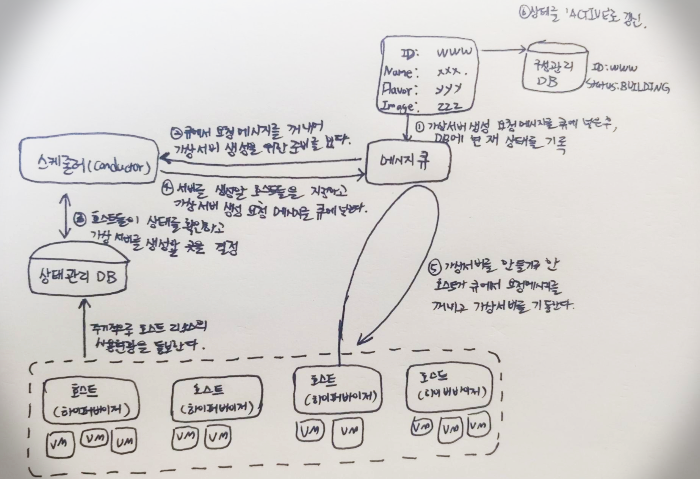 ⑥ 상태를 'ACTIVE'로 갱신.
ID: WWW
Name: xxx.
Flavor: yyy
Image: zzz
구성관리
DB
ID:WWW
Status:BUILDING
① 가상서버 생성 요청 메시지를 큐에 넣은후,
DB에 현재 상태를 기록
메시지 큐
② 큐에서 요청 메시지를 꺼내어
가상서버 생성을 위한 준비를 한다.
스케줄러(Conductor)
④ 서버를 생성할 호스트들을 지정하고
가상서버 생성 요청 메시지를 큐에 넣는다.
③ 호스트들의 상태를 확인하고
가상서버를 생성할 곳을 결정
상태관리 DB
⑤ 가상서버를 만들기로 한
호스트가 큐에서 요청메시지를
꺼내고 가상서버를 기동한다.
주기적으로 호스트 리소스의
사용현황을 보낸다.
호스트
(하이퍼바이저)
VM VM VM
호스트
(하이퍼바이저)
VM VM
호스트
(하이퍼바이저)
VM VM
호스트
(하이퍼바이저)
VM VM VM